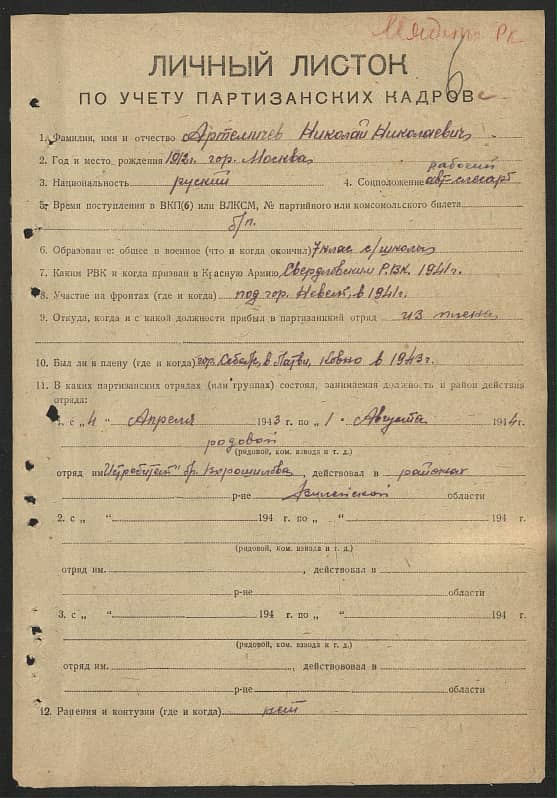 Мядель РК
6
ЛИЧНЫЙ ЛИСТОК
ПО УЧЕТУ ПАРТИЗАНСКИХ КАДРОВ
1. Фамилия, имя и отчество Артемичев Николай Николаевич
2. Год и место рождения 1912г. гор. Москва
рабочий
3. Национальность руский 4. Соцположение авт-слесарь
5. Время поступления в ВКП(б) или ВЛКСМ, № партийного или комсомольского билета
б/п.
6. Образование: общее и военное (что и когда окончил) 7 клас с/школы
7. Каким РВК и когда призван в Красную Армию Свердловским Р.В.К. 1941г.
8. Участие на фронтах (где и когда) под гор. Невель, в 1941г.
9. Откуда, когда и с какой должности прибыл в партизанский отряд из плена
10. Был ли в плену (где и когда) гор. Себеж, в Латви, Ковно в 1943г.
11. В каких партизанских отрядах (или группах) состоял, занимаемая должность и район действия
отряда:
1. с „4 “ Апреля 1943 г. по „1 “ Августа 1944 г.
родовой
(рядовой, ком. взвода и т. д.)
отряд им. Истребитель" бр. Ворошилова, действовал в районах
р-не Вилейской области
2. с „ “ 194 г. по „ “ 194 г.
(рядовой, ком. взвода и т. д.)
отряд им. , действовал в
р-не области
3. с „ “ 194 г. по „ “ 194 г.
(рядовой, ком. взвода и т. д.)
отряд им. , действововал в
р-не области
12. Ранения и контузии (где и когда) нет